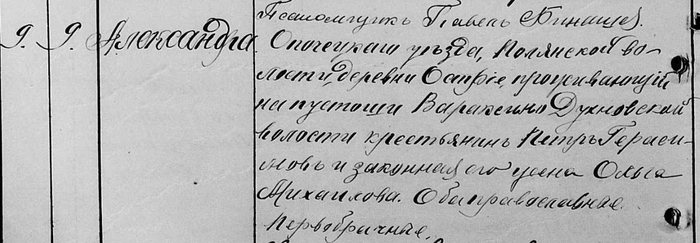 Псаломщикъ Павелъ
9. 9. Александра. Опочецкаго уѣзда, Полянской во-
лости, деревни проживающій
на пустоши Вараксино Духновской
волости крестьянинъ Петръ Гераси-
мовъ и законная его жена Ольга
Михаилова. Оба православные.
Первобрачные.